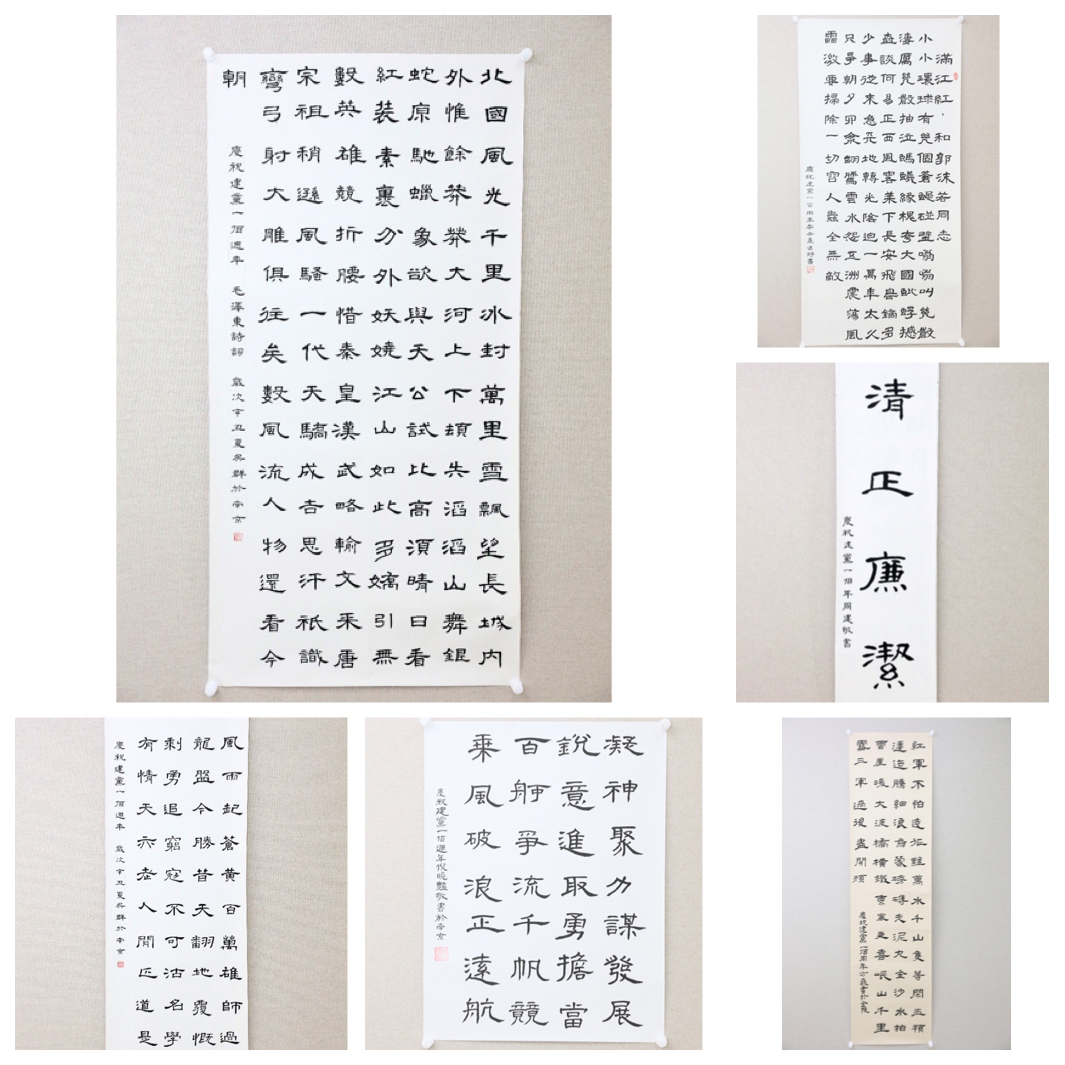 北國風光千里冰封萬里雪飄望長城内
外惟餘莽莽大河上下頓失滔滔山舞銀
蛇原馳蠟象欲與天公試比高須晴日看
紅裝素裹分外妖嬈江山如此多嬌引無
數英雄競折腰惜秦皇漢武略輸文采唐
宗祖稍遜風騷一代天驕成吉思汗祇識
彎弓射大雕俱往矣數風流人物還看今
朝
慶祝建黨一佰週年 毛澤東詩詞 歲次辛丑夏吳群於南京
滿江紅、和郭沫若同志
小小環球有幾個蒼蠅碰壁嗡嗡叫幾聲
淒厲幾聲抽泣螞蟻緣槐夸大國蚍蜉撼
樹談何易正西風落葉下長安飛鳴鏑多
少事從來急天地轉光陰迫一萬年太久
只爭朝夕四海翻騰雲水怒五洲震蕩風
雷激要掃除一切害人蟲全無敵
慶祝建黨一百周年
清正廉潔
慶祝建黨一佰年周建敬書
風雨起蒼黃百萬雄師過
龍盤今勝昔天翻地覆慨
剩勇追窮寇不可沽名學
有情天亦老人間正道是
慶祝建黨一佰週年 歲次辛丑夏吳群於南京
凝神聚力謀發展
銳意進取勇擔當
百舸爭流千帆競
乘風破浪正遠航
慶祝建黨一百週年倪曉豔敬書於南京
紅軍不怕遠征難萬水千山隻等閑五嶺
逶迤騰細浪烏蒙磅礴走泥丸金沙水拍
雲崖暖大渡橋橫鐵索寒更喜岷山千里
雪三軍過後盡開顏
慶祝建黨一百周年